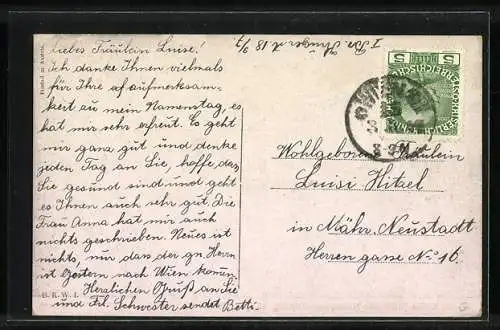 Liebes Fräulein Luise!
Ich danke Ihnen vielmals
für Ihre aufmerksam-
kert zu mein Namenstag, es
hat mir sehr erfreut. Es geht
mir ganz gut und denke
jeden Tag an Sie, hoffe, dass
Sie gesund sind und geht
es Ihnen auch sehr gut. Die
Frau Anna hat mir auch
nichts geschrieben. Neues ist
nichts, nur dass der gn. Herrn
ist gestern nach Wien
Herzlichen Gruß an Sie
und Frl. Schwester sendet Betti.
B.K.W.I.
5 5
Wohlgeboren Fräulein
Luisi Hitzel
in Mähr. Neustadt
Herren gasse No 16